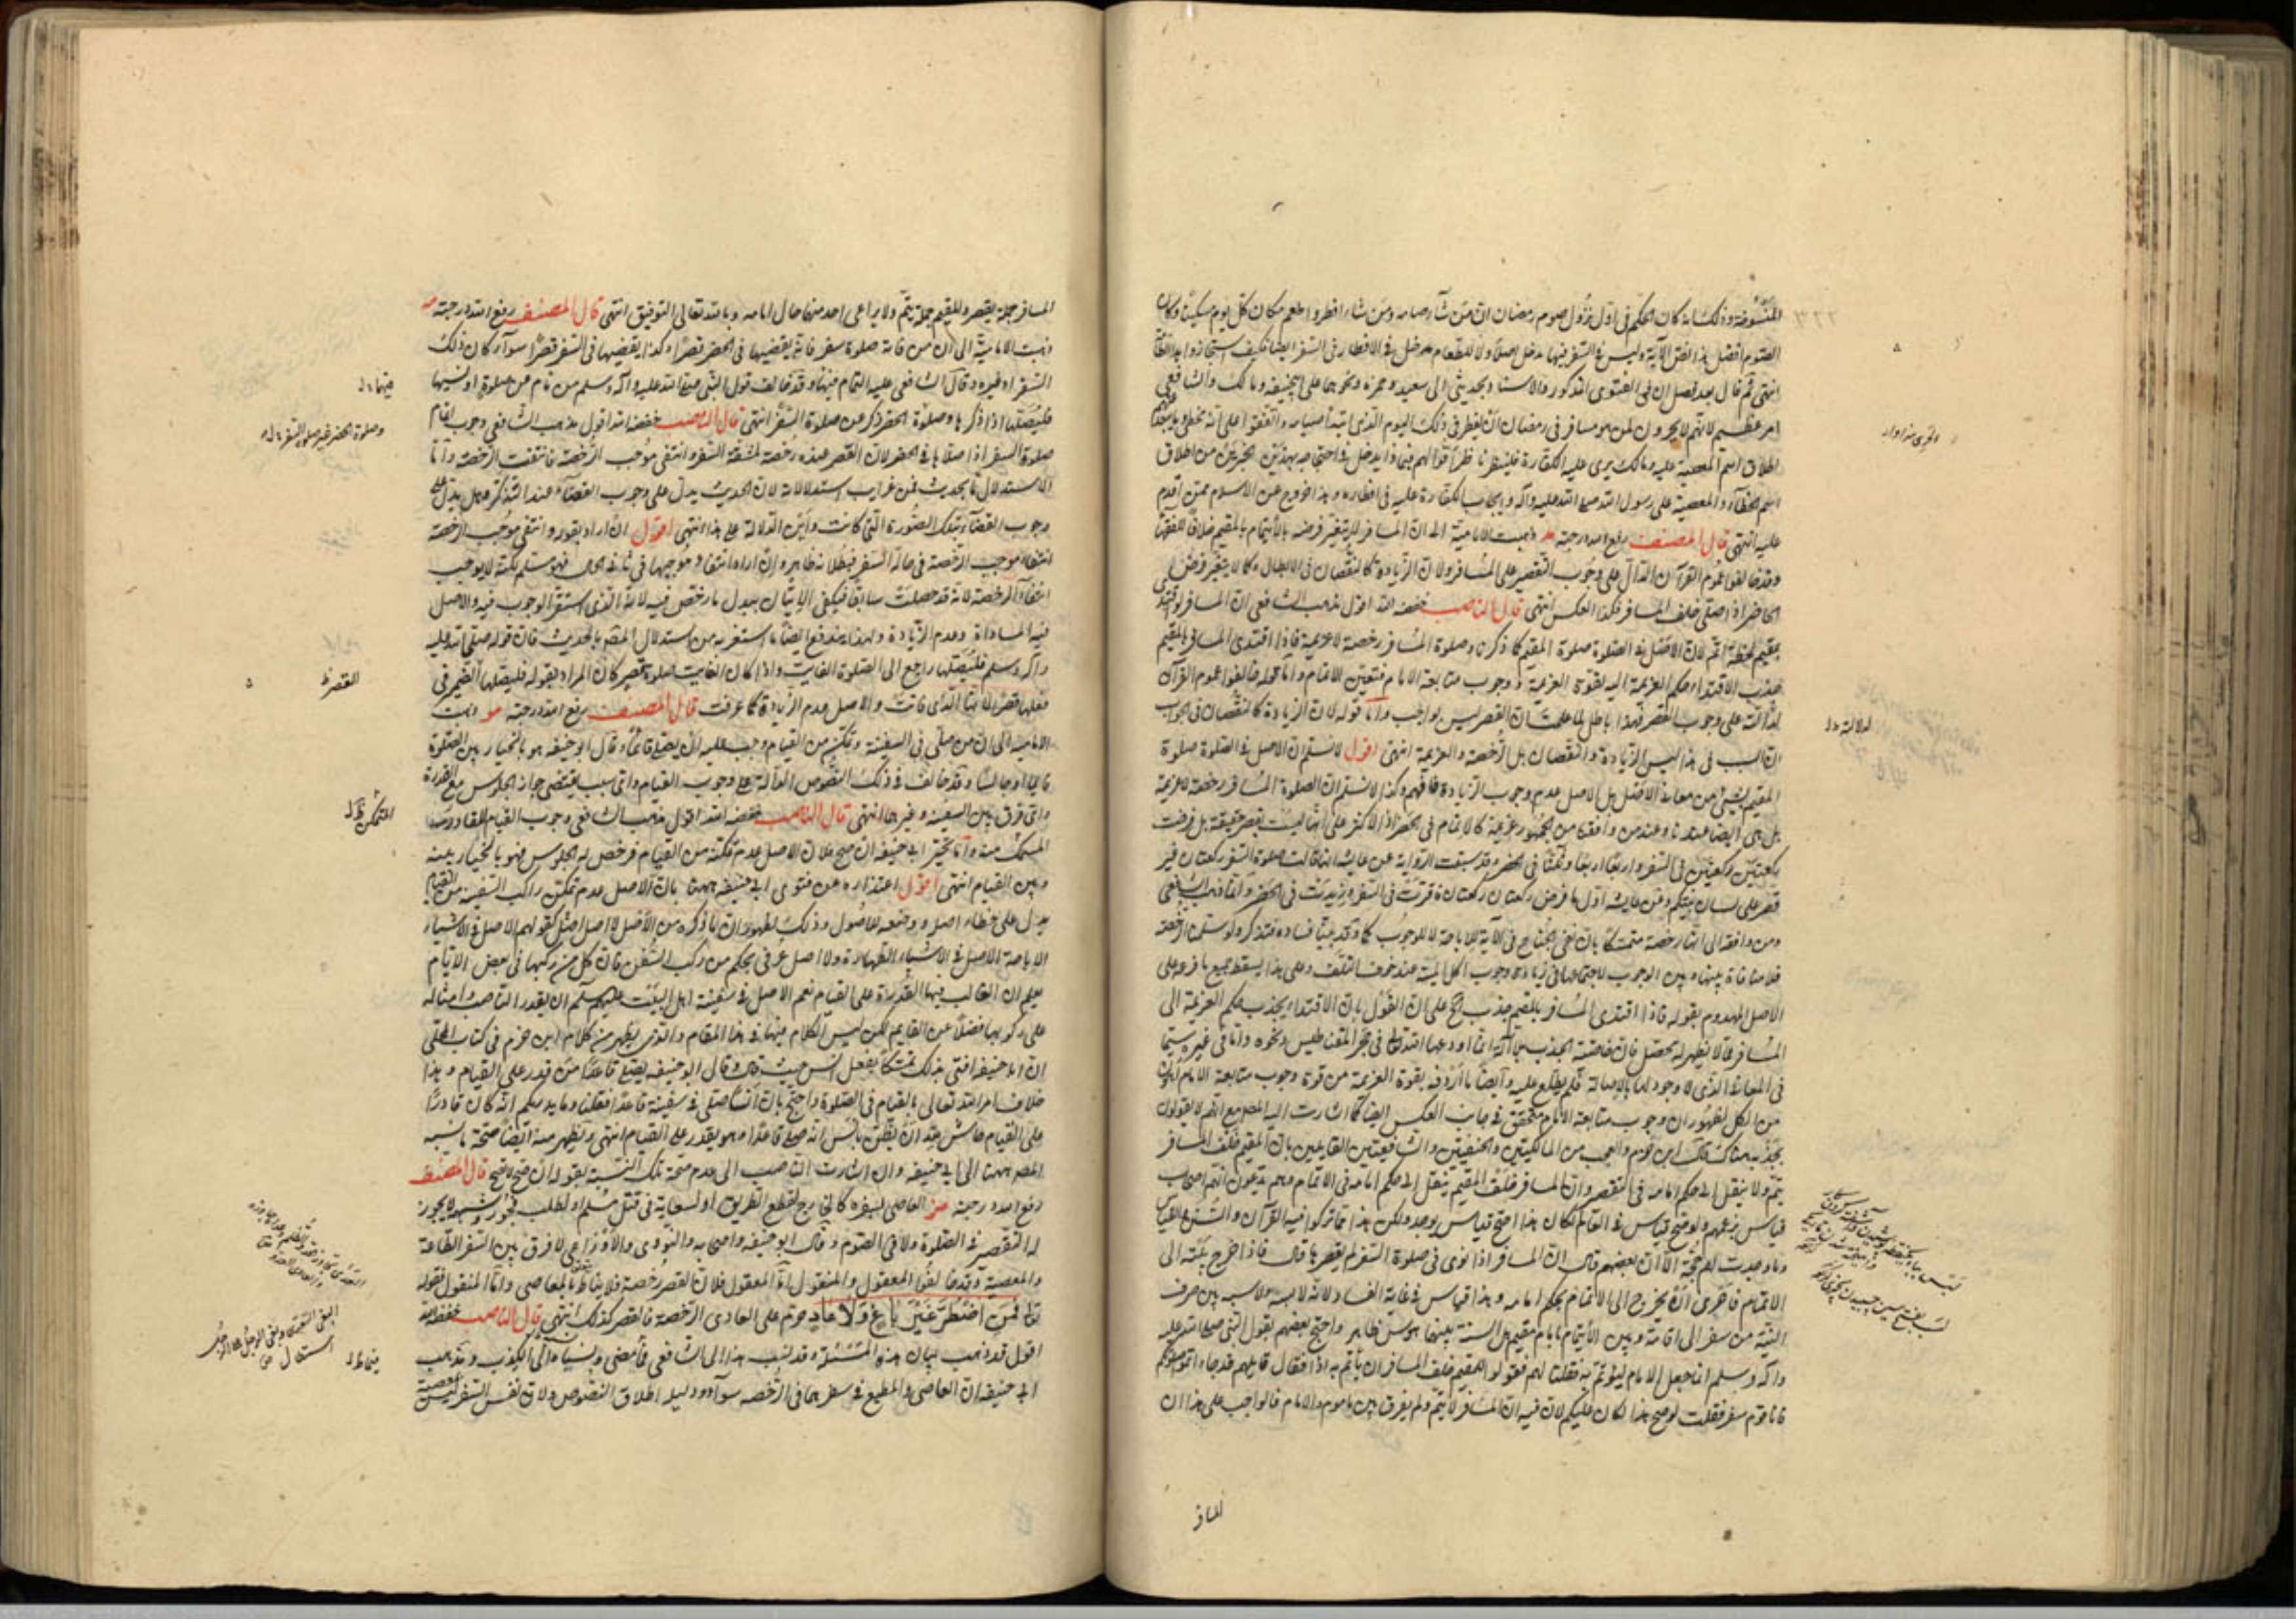 المنسوخة وذلك انه كان الحكم فى اول نزول صوم رمضان ان من شآء صامه ومن شاء افطر واطعم مكان كل يوم مسكينا وكان
الصوم افضل هذا نص الآية وليس فى السفر فيها مدخل اصلا ولا للاطعام مدخل فى الافطار فى السفر ايضا فكيف استجازوا هذه
انتهى ثم قال بعد فصل ان فى الفتوى المذكور والاسناد وبحديثى ابى سعيد وحمزة ونحوهما على ابيحنيفة ومالك والشافعى
امر عظيم لانهم لا يجرون لمن هو مسافر فى رمضان ان يفطر فى ذلك اليوم الذى ابتدأ صيامه واتفقوا على انه مخطئ
اطلاق اسم المعصية عليه ومالك يرى عليه الكفارة فلينظر ناظر اقوالهم فيما ذا يدخل فى احتجاجه بهذين الخبرين من اطلاق
اسم الخطآء والمعصية على رسول الله صلى الله عليه وآله وايجاب الكفارة عليه فى افطاره وهذا خروج عن الاسلام ممن اقدم
عليه انتهى قال المصنف رفع الله درجته ذهبت الامامية الى ان المسافر لا يتغير فرضه بالأيتمام بالمقيم خلافا للفقهآ
وقد خالفوا عموم القرآن الدال على وجوب التقصير على المسافر ولان الزيادة كالنقصان فى الابطال وكما لا يتغير فرض
الحاضر اذا صلى خلف المسافر فكذا العكس انتهى قال الناصب خفضه الله اقول مذهب الشافعى ان المسافر لو اقتدى
بمقيم لحظة اتم لان الافضل فى الصلوة صلوة المقيم كما ذكرنا وصلوة المسافر رخصة لا عزيمة فاذا اقتدى المسافر بالمقيم
جذب الاقتداء حكم العزيمة اليه لقوة العزيمة ووجوب متابعة الامام فتعين الاتمام واما قوله خالفوا عموم القرآن
لدالة على وجوب القصر فهذا باطل لما علمت ان القصر ليس بواجب واما قوله لان الزيادة كالنقصان فى الجواب
ان السبب فى هذا ليس الزيادة والنقصان بل الرخصة والعزيمة انتهى اقول لا نسلم ان الاصل فى الصلوة صلوة
المقيم بشئ من معانى الاصل بل الاصل عدم وجوب الزيادة فافهم وكذا لا نسلم ان الصلوة المسافر رخصة لا عزيمة
بل هى ايضا عندنا وعند من وافقنا من الجمهور عزيمة كالاتمام فى الحضر اذ الاكثر على انها ليست بقصر حقيقة بل فرضت
ركعتين ركعتين فى السفر واربعا اربعا وثلثا فى الحضر وقد سبقت الرواية عن عايشه انها قالت صلوة السفر ركعتان غير
قصر على لسان نبيكم وعن عايشه اول ما فرض ركعتان ركعتان فاقرت فى السفر وزيدت فى الحضر واما ذهب الشافعى
ومن وافقه الى انها رخصة متمسكا بان نفى الجناح فى الآية للاباحة لا للوجوب كما وقد بينا فساده فتذكر ولو سلمنا الرخصة
فلا منافاة بينها وبين الوجوب لاجتماعها فى زيادة وجوب اكل الميتة عند خوف التلف وعلى هذا يسقط جميع ما فرعه على
الاصل المهدوم بقوله فاذا اقتدى المسافر بالمقيم جذب الخ على ان القول بان الاقتداء يجذب حكم العزيمة الى
المسافر مما لا يظهر له محصل فان خاصية الجذب مما انما اودعها الله تعالى فى حجر المغناطيس ونحوه واما فى غيره سيما
فى المعانى الذى لا وجود لها بالاصالة فلم يطلع عليه وايضا ما اردفه بقوة العزيمة من قوة وجوب متابعة الامام
من الكل لظهور ان وجوب متابعة الامام متحقق فى جانب العكس ايضا كما اشارت اليه المصنف مع انهم لا يقولون
بجذبه هناك قال ابن حزم والعجب من المالكيين والحنفيين والشافعيين القايلين بان المقيم خلف المسافر
يتم ولا ينتقل الى حكم امامه فى التقصير وان المسافر خلف المقيم ينتقل الى حكم امامه فى الاتمام وهم يدعون انهم اصحاب
قياس بزعمهم ولو صح قياس فى العالم لكان هذا اصح قياس يوجد ولكن هذا مما تركوا فيه القرآن والسنن والقياس
وما وجدت لهم حجة الا ان بعضهم قال ان المسافر اذا نوى فى صلوة السفر لم يقصرها قال فاذا خرج بنيته الى
الاتمام فاحرى ان يخرج الى الاتمام بحكم امامه وهذا قياس فى غاية الفساد لانه لا نسبة ولا شبه بين صرف
النية من سفر الى اقامة وبين الأيتمام بامام مقيم بل التشبيه بينهما هوس ظاهر واحتج بعضهم بقول النبى صلى الله عليه
وآله وسلم انما جعل الامام ليؤتم به فقلنا لهم فقولوا للمقيم خلف المسافر ان يأتم به اذا فقال قايلهم قد جاء اتموا صلوتكم
فانا قوم سفر فقلت لو صح هذا لكان عليكم لان فيه ان المسافر لا يتم ولم يفرق بين ماموم والامام فالواجب على هذا ان
المسافر
لدلالة
المسافر جملة يقصر وللمقيم جملة يتم ولا يراعى احد منهما حال امامه وبالله تعالى التوفيق انتهى قال المصنف رفع الله درجته
ذهبت الامامية الى ان من فاته صلوة سفر فانه يقضيها فى الحضر قصرا وكذا يقضيها فى السفر قصرا سوآء كان ذلك
السفر او غيره وقال الشافعى عليه التمام فيهما وقد خالف قول النبى صلى الله عليه وآله وسلم من نام عن صلوة او نسيها
فليصلها اذا ذكرها وصلوة الحضر ذكر عن صلوة السفر انتهى قال الناصب خفضه الله اقول مذهب الشافعى وجوب اتمام
صلوة السفر اذا صلاها فى الحضر لان القصر عنده رخصة لمشقة السفر وانتفى موجب الرخصة فانتفت الرخصة واما
الاستدلال بالحديث فمن غرايب استدلالاته لان الحديث يدل على وجوب القضاء عند التذكر وهل يدل على
وجوب القضاء بتلك الصورة التى كانت واين الدلالة على هذا انتهى اقول ان اراد بقوله وانتفى موجب الرخصة
انتفاء موجب الرخصة فى حالة السفر فبطلانه ظاهر وان اراد انتفاء موجبها فى ثانى الحال فهو مسلم لكنه لا يوجب
انتفاء الرخصة لانه قد حصلت سابقا فيكفى الاتيان ببدل ما رخص فيه لانه الذى استقر الوجوب فيه والاصل
فيه المساواة وعدم الزيادة وبهذا يندفع ايضا ما استغربه من استدلال المصنف بالحديث فان قوله صلى الله عليه
وآله وسلم فليصلها راجع الى الصلوة الفايت واذا كان الفايت صلوة قصر كان المراد بقوله فليصلها الضمير فى
فعلها قصرا لانها الذى فاتت والاصل عدم الزيادة كما عرفت قال المصنف رفع الله درجته مو ذهبت
الامامية الى ان من صلى فى السفينة وتمكن من القيام وجب عليه ان يصلى قائما وقال ابو حنيفه هو بالخيار بين الصلوة
قائما او جالسا وقد خالف فى ذلك النصوص الدالة على وجوب القيام واى سبب يقتضى جواز الجلوس مع القدرة
واى فرق بين السفينة وغيرها انتهى قال الناصب خفضه الله اقول مذهب الشافعى وجوب القيام للقادر
المتمكن منه واما تخيير ابى حنيفه ان صح فلان الاصل عدم تمكنه من القيام فرخص له الجلوس فهو بالخيار بينه
وبين القيام انتهى اقول اعتذاره عن فتوى ابى حنيفه ههنا بان الاصل عدم تمكن راكب السفينة من القيام
يدل على خطاء اصله ووضعه للاصول وذلك لظهور ان ما ذكره من الأصل لا اصل اصلى كقولهم الاصل فى الاشياء
الاباحة الاصل فى الاشياء الطهارة ولا اصل عرفى يحكم من ركب السفن فان كل من ركبها فى بعض الايام
يعلم ان الغالب فيها القدرة على القيام نعم الاصل فى سفينة اهل البيت عليهم السلم ان لا يقدر الناصب وامثاله
على ركوبها فضلا عن القايم لكن ليس الكلام فيها فى هذا المقام والذى يظهر من كلام ابن حزم فى كتاب المحلى
ان ابا حنيفه افتى بذلك تمسكا بفعل انس حيث قال وقال ابو حنيفه يصلى قاعدا من قدر على القيام وهذا
خلاف امر الله تعالى بالقيام فى الصلوة واحتج بان انسا صلى فى سفينة قاعدا فقلنا وما يدريكم انه كان قادرا
على القيام حاش لله ان يظن بانس انه صلى قاعدا وهو يقدر على القيام انتهى ويظهر منه ايضا صحة ما نسبه
المصنف ههنا الى ابى حنيفه وان اشارت الناصب الى عدم صحة تلك النسبة بقوله ان صح قال المصنف
رفع الله درجته مز العاصى بسفره كالخارج لقطع الطريق او لسعاية فى قتل مسلم او لطلب فجور وشبهه لا يجوز
له التقصير فى الصلوة ولا فى الصوم وقال ابو حنيفه واصحابه والثورى والأوزاعى لا فرق بين السفر الطاعة
والمعصية وقد خالفوا المعقول والمنقول اما المعقول فلان القصر رخصة فلا يناط بالمعاصى واما المنقول فقوله
تعالى فمن اضطر غير باغ ولا عاد حرم على العادى الرخصة فالقصر كذلك انتهى قال الناصب خفضه الله
اقول قد ذهب لبيان هذه المسئلة وقد نسب هذا الى الشافعى فما مضى ونسيانه الى الكذب ومذهب
ابى حنيفه ان العاصى والمطيع فى سفرهما فى الرخصه سوآء ودليله اطلاق النصوص ولان نفس السفر ليس بمعصية
فيهما
وصلوة الحضر غير صلوة السفر
القصر
المتمكن